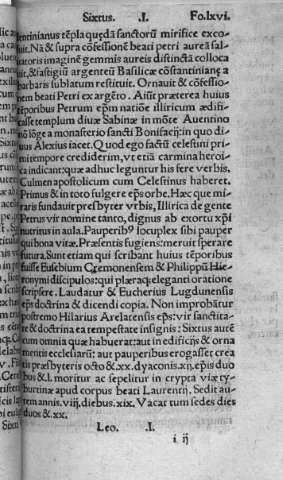 Sixtus. .I. Fo.lxvi.
entinianus tẽpla quędã sanctorũ mirifice exco-
uit. Nã & supra cõfessionẽ beati petri aureã sal-
uatoris imaginẽ gemmis aureis distinctã colloca
uit, & fastigiũ argenteũ Basilicæ cõstantinianę a
barbaris sublatum restituit. Ornauit & cõfessio-
nem beati Petri ex argẽto. Aiũt præterea huius
tẽporibus Petrum epm̃ natiõe illiricum ædifi-
casse templum diuæ Sabinæ in mõte Auentino
nõ lõge a monasterio sancti Bonifacij: in quo di-
uus Alexius iacet. Quod ego factũ celestini pri-
mi tempore crediderim, vt etiã carmina heroi-
ca indicant: quæ adhuc leguntur his fere verbis.
Culmen apostolicum cum Celestinus haberet.
Primus & in toto fulgere ep̃s orbe. Hæc que mi-
raris fundauit presbyter vrbis, Illirica de gente
Petrus vir nomine tanto, dignus ab exortu xp̃i
nutritus in aula. Pauperib9 locuplex sibi pauper
qui bona vitæ. Præsentis fugiens: meruit sperare
futura. Sunt etiam qui scribant huius tẽporibus
fuisse Eusebium Cremonensem & Philippũ Hie-
ronymi discipulos: qui pleraq; eleganti oratione
scripsere. Laudatur & Eucherius Lugdunensis
ep̃s doctrina & dicendi copia. Non improbãtur
postremo Hilarius Arelatensis ep̃s: vir sanctita-
te & doctrina ea tempestate insignis: Sixtus autẽ
cum omnia quæ habuerat: aut in edificijs & orna
mentis ecclesiarũ: aut pauperibus erogasset crea
tis præsbyteris octo & .xx. dyaconis .xij. ep̃is duo
bus & .l. moritur ac sepelitur in crypta viæ ty-
burtinæ apud corpus beati Laurentij. Sedit au-
tem annis .viij. diebus .xix. Vacat tum sedes dies
duos & .xx.
Leo. .I.
i ij